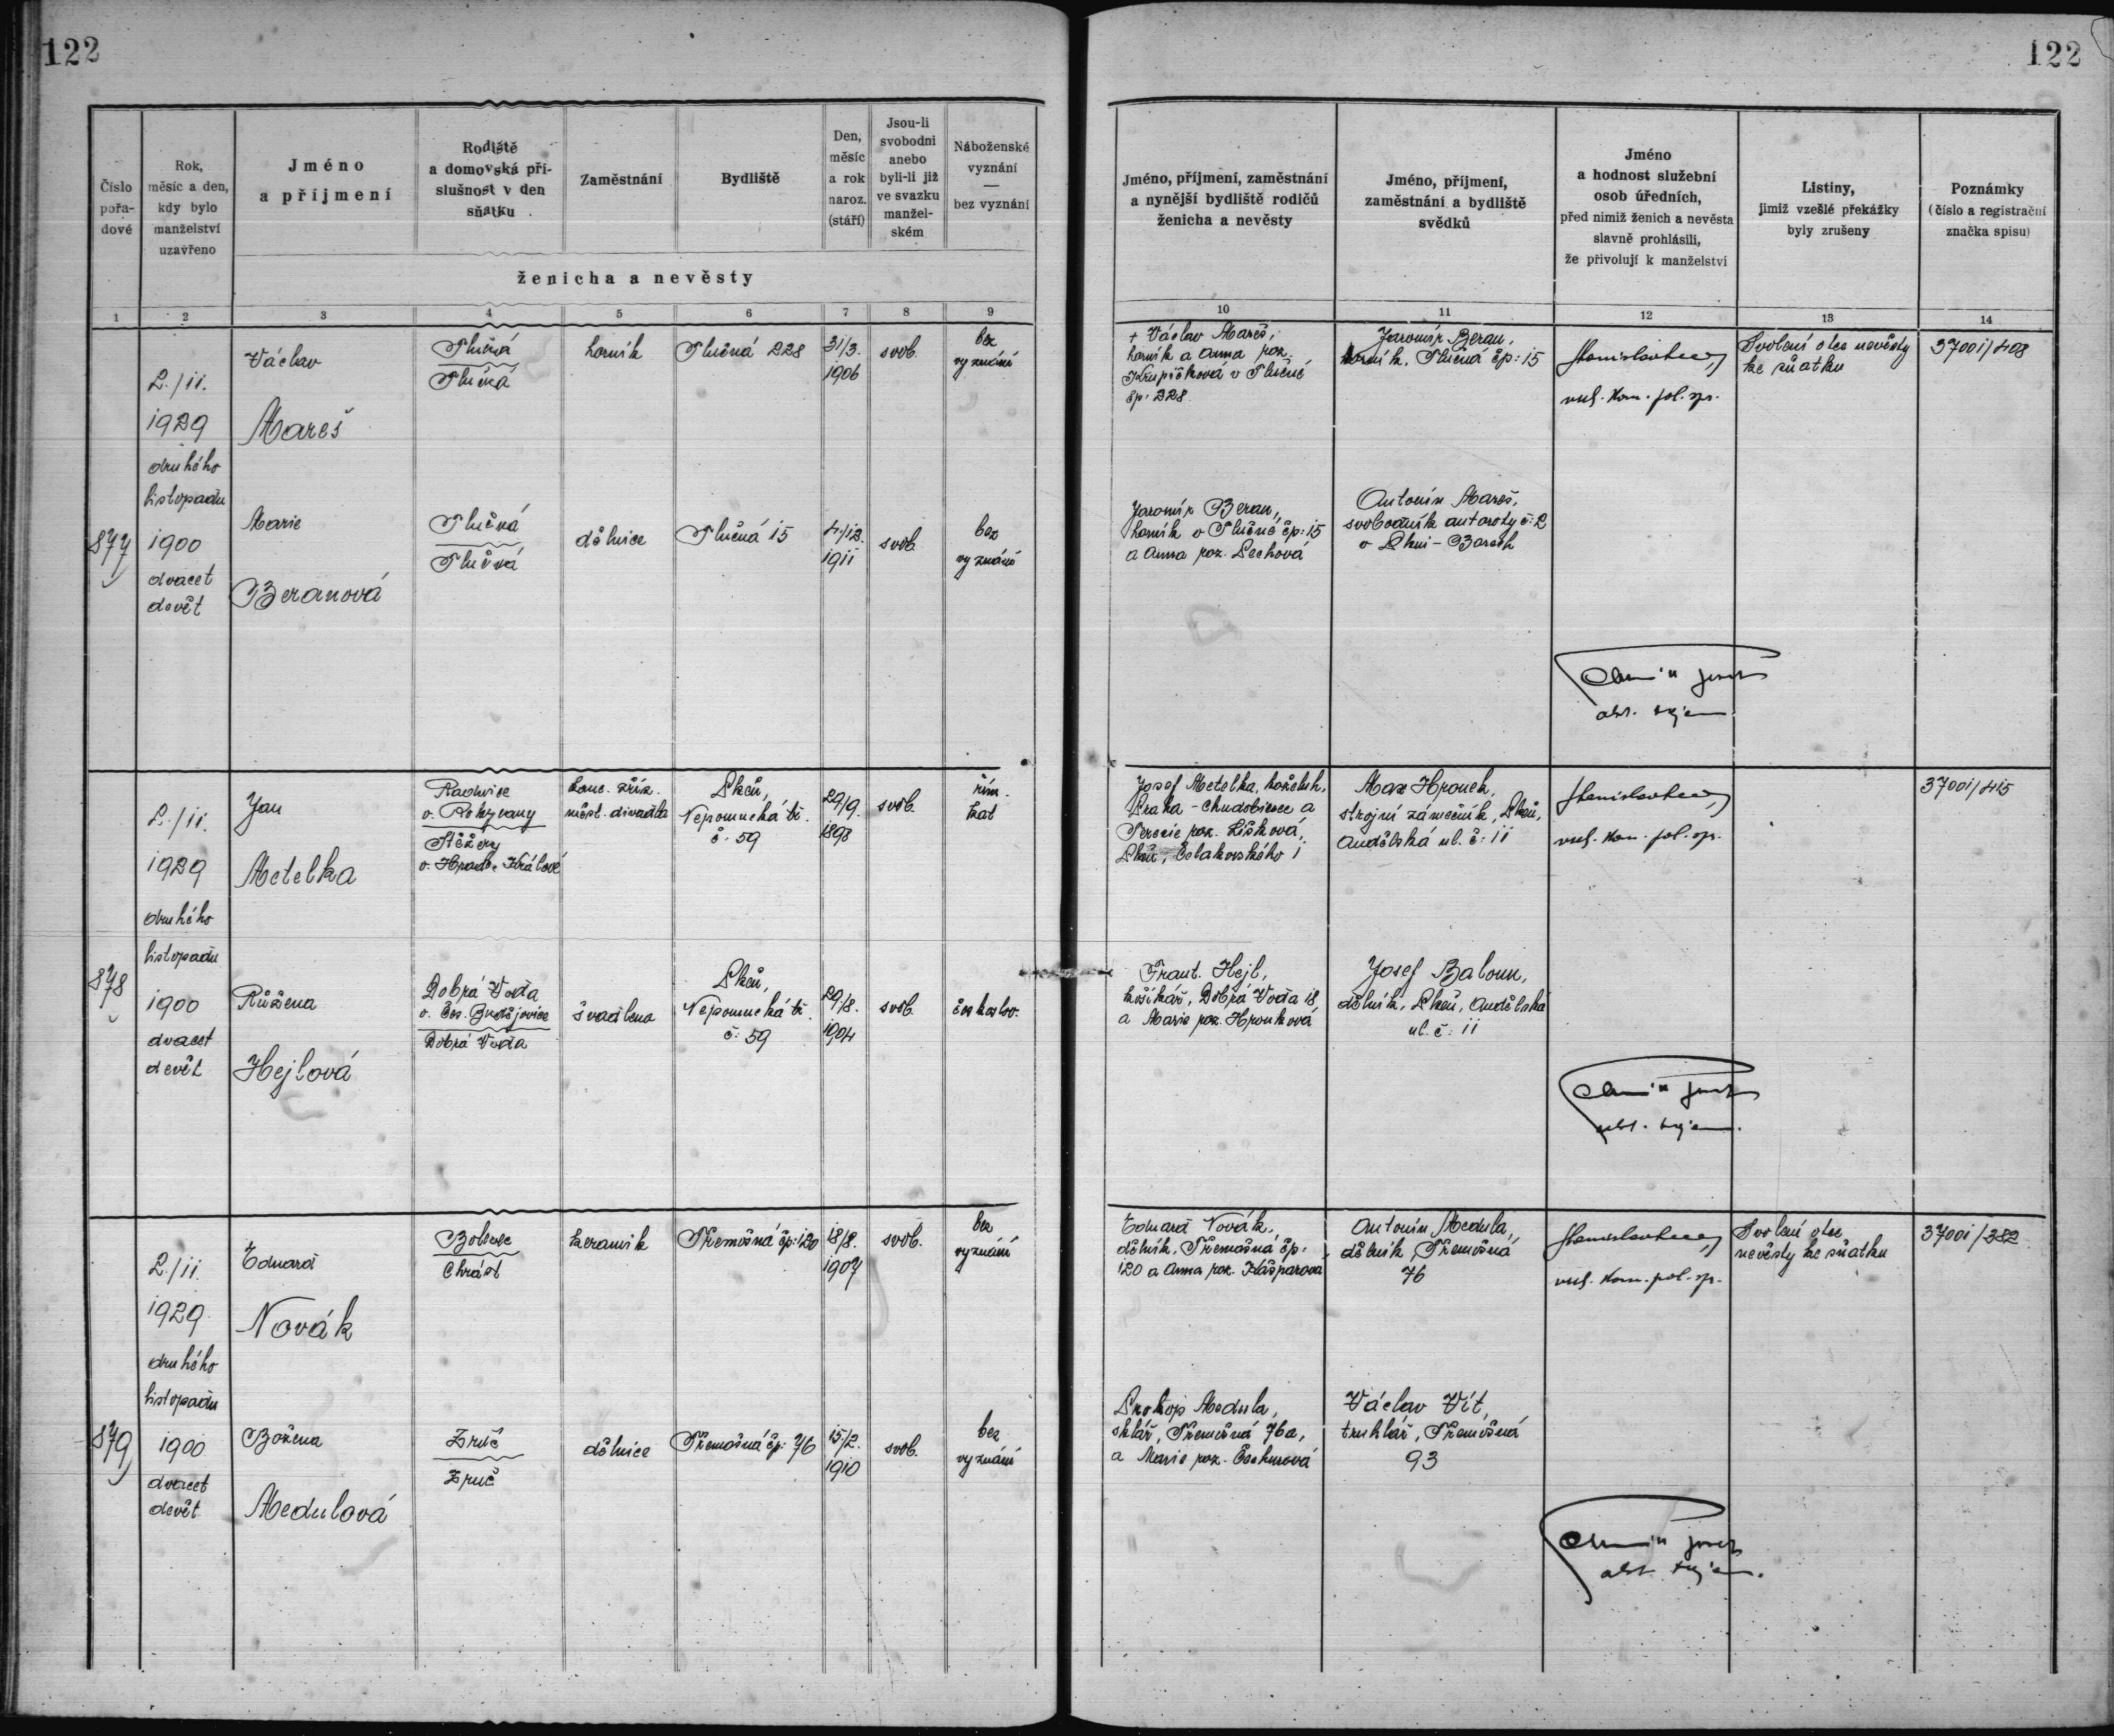 122
122
Číslo pořa-dové
Rok, měsíc a den, kdy bylo manželství uzavřeno
Jméno a příjmení
Rodiště a domovská pří-slušnost v den sňatku
Zaměstnání
Bydliště
Den, měsíc a rok naroz. (stáří)
Jsou-li svobodni anebo byli-li již ve svazku manžel-ském
Náboženské vyznání — bez vyznání
ženicha a nevěsty
Jméno, příjmení, zaměstnání a nynější bydliště rodičů ženicha a nevěsty
Jméno, příjmení, zaměstnání a bydliště svědků
Jméno a hodnost služební osob úředních, před nimiž ženich a nevěsta slavně prohlásili, že přivolují k manželství
Listiny, jimiž vzešlé překážky byly zrušeny
Poznámky (číslo a registrační značka spisu)
1 2 3 4 5 6 7 8 9 10 11 12 13 14
877
2./11.
1929
druhého
listopadu
1900
dvacet
devět
Václav
Mareš
Tlučná
Tlučná
horník
Tlučná 228
31/3.
1906
svob.
bez
vyznání
+ Václav Mareš,
horník a Anna roz.
Krupičková v Tlučné
čp. 228
Jaromír Beran,
horník, Tlučná čp: 15
Svolení otce nevěsty
ke sňatku
37001/408
Marie
Beranová
Tlučná
Tlučná
dělnice
Tlučná 15
4/12.
1911
svob.
bez
vyznání
Jaromír Beran,
horník v Tlučné čp: 15
a Anna roz. Lechová
Antonín Mareš,
svobodník autoroty č: 2
v Plzni - Borech
878
2./11.
1929
druhého
listopadu
1900
dvacet
devět
Jan
Metelka
Radnice
o. Rokycany
Stěžery
o. Hradec Králové
kanc. zříz.
měst. divadla
Plzeň,
Nepomucká tř.
č: 59
29/9.
1898
svob.
řím.
kat
Josef Metelka, koželuh,
Praha - Chudobince a
Terezie roz. Lišková,
Plzeň, Čelakovského 1
Max Hrouch,
strojní zámečník, Plzeň,
Andělská ul. č: 11
37001/415
Růžena
Hejlová
Dobrá Voda
o. Čes. Budějovice
Dobrá Voda
švadlena
Plzeň,
Nepomucká tř.
č: 59
29/8.
1904
svob.
českoslov.
Frant. Hejl,
košíkář, Dobrá Voda 18
a Marie roz. Hrouhová
Josef Baloun,
dělník, Plzeň, Andělská
ul. č: 11
879
2./11.
1929.
druhého
listopadu
1900
dvacet
devět
Eduard
Novák
Bolevec
Chrást
keramik
Třemošná čp: 120
18/8.
1907
svob.
bez
vyznání
Eduard Novák,
dělník, Třemošná čp:
120 a Anna roz. Kašparova
Antonín Medula,
dělník, Třemošná
76
Svolení otce
nevěsty ke sňatku
37001/382
Božena
Medulová
Zruč
Zruč
dělnice
Třemošná čp: 76
15/2.
1910
svob.
bez
vyznání
Prokop Medula,
sklář, Třemošná 76a,
a Marie roz. Čechurová
Václav Vít,
truhlář, Třemošná
93